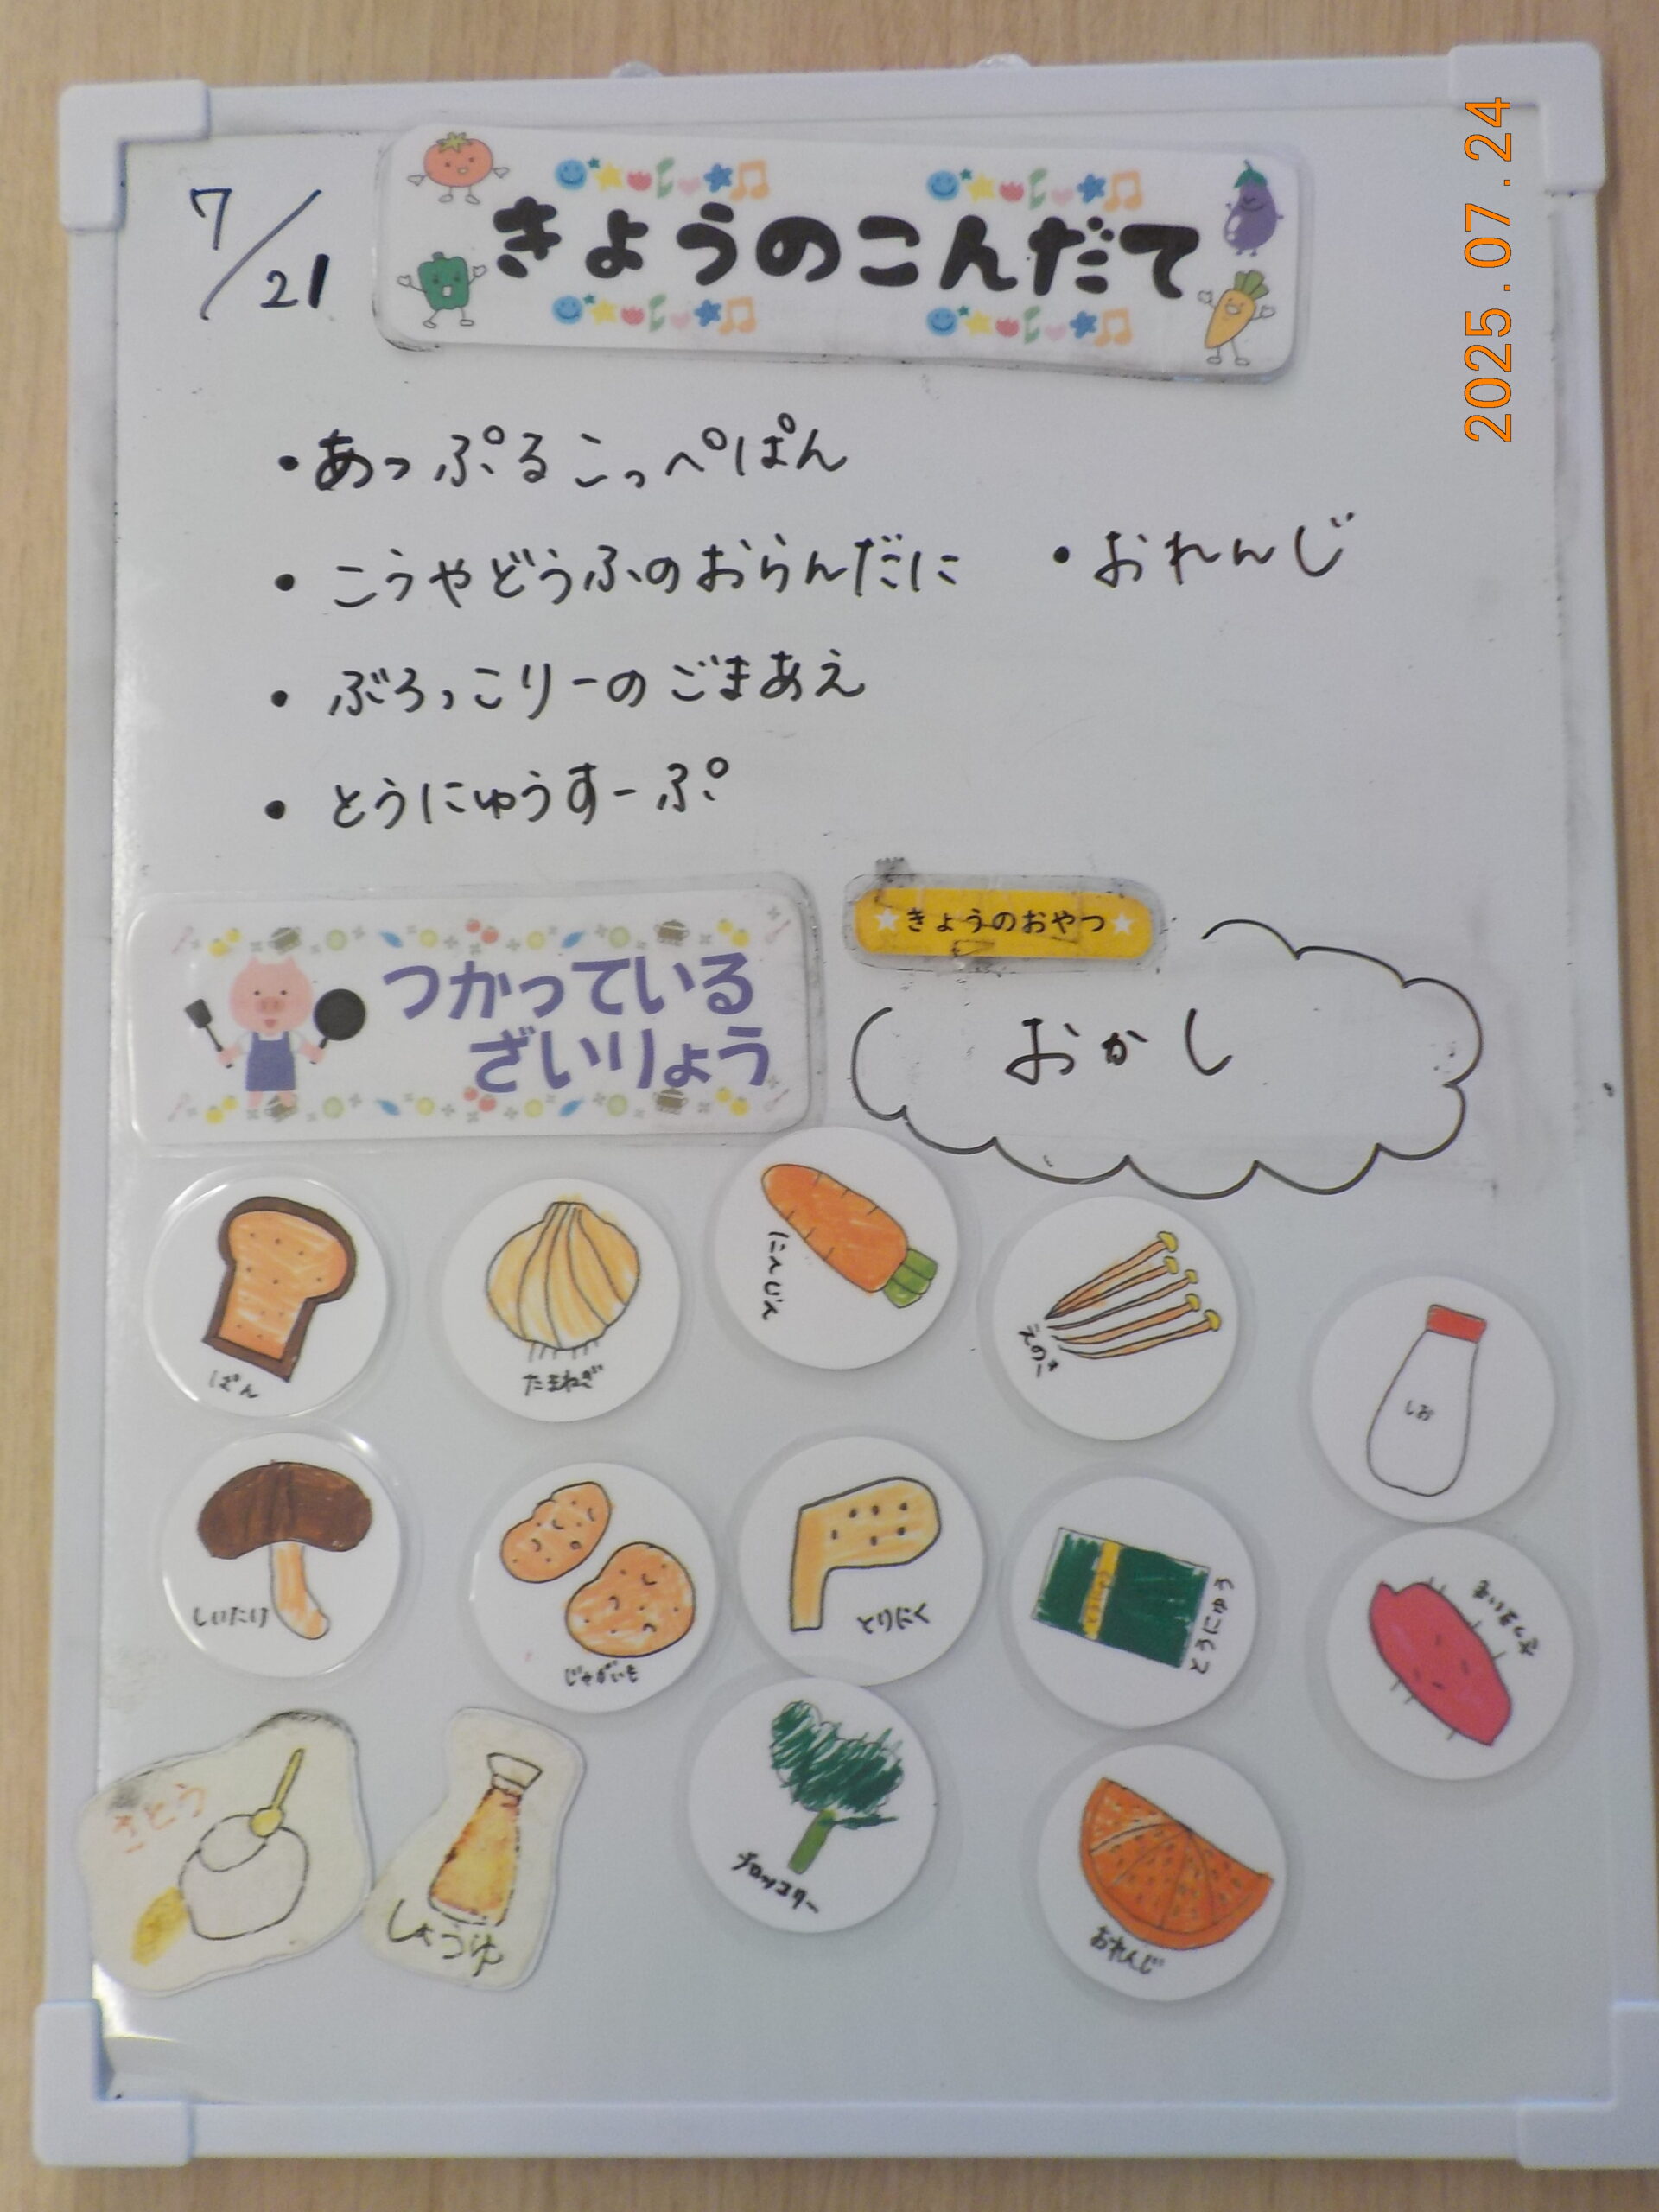 2025.07.24
7/21
きょうのこんだて
・あっぷるこっぺぱん
・こうやどうふのおらんだに
・おれんじ
・ぶろっこりーのごまあえ
・とうにゅうすーぷ
つかっている
ざいりょう
★きょうのおやつ★
おかし
ぱん
たまねぎ
にんじん
えのき
しお
しいたけ
じゃがいも
とりにく
とうにゅう
さつまいも
さとう
しょうゆ
ブロッコリー
おれんじ